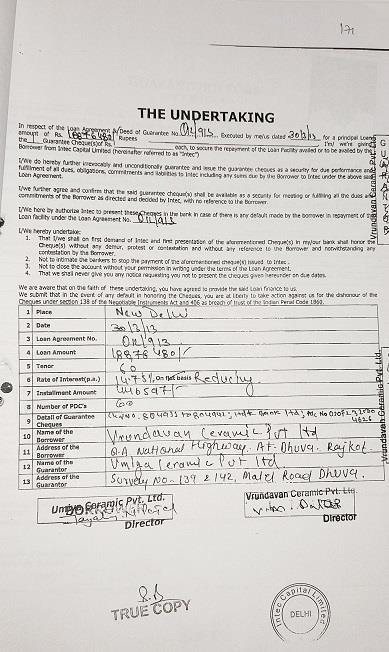 171
THE UNDERTAKING
In respect of the Loan Agreement &/Deed of Guarantee No. Executed by me/us dated 30/3/13 for a principal Loan
amount of Rs. 18876480/- Rupees I'm/ we're giving
the 1 Guarantee Cheque(s)of Rs. each, to secure the repayment of the Loan Facility availed or to be availed by the
Borrower from Intec Capital Limited (hereinafter referred to as "Intec")
I/We do hereby further irrevocably and unconditionally guarantee and issue the guarantee cheques as a security for due performance and
fulfilment of all dues, obligations, commitments and liabilities to Intec including any sums due by the Borrower to Intec under the above said
Loan Agreement.
I/We further agree and confirm that the said guarantee cheque(s) shall be available as a security for meeting or fulfilling all the dues and
commitments of the Borrower as directed and decided by Intec, with no reference to the Borrower.
I/We here by authorize Intec to present these Cheques in the bank in case of there is any default made by the borrower in repayment of the
Loan facility under the Loan Agreement No.
I/We hereby undertake:
1. That I/we shall on first demand of Intec and first presentation of the aforementioned Cheque(s) in my/our bank shall honor the
Cheque(s) without any demur, protest or contestation and without any reference to the Borrower and notwithstanding any
contestation by the Borrower.
2. Not to intimate the bankers to stop the payment of the aforementioned cheque(s) issued to Intec.
3. Not to close the account without your permission in writing under the terms of the Loan Agreement.
4. That we shall never give you any notice requesting you not to present the cheques given hereunder on due dates.
We are aware that on the faith of these undertaking, you have agreed to provide the said Loan finance to us.
We submit that in the event of any default in honoring the Cheques, you are at liberty to take action against us for the dishonour of the
Cheques under section 138 of the Negotiable Instruments Act and 406 as breach of trust of the Indian Penal Code 1860.
1 Place New Delhi
2 Date 30/3/13
3 Loan Agreement No.
4 Loan Amount 18876480/-
5 Tenor 60
6 Rate of Interest(p.a.) 14.75% on net basis Reducing
7 Installment Amount 446597/-
8 Number of PDC's 60
9 Detail of Guarantee
Cheques
10 Name of the
Borrower Vrundavan Ceramic Pvt ltd
11 Address of the
Borrower 8-A National Highway. At-Dhuva. Rajkot.
12 Name of the
Guarantor Umiya Ceramic Pvt ltd
13 Address of the
Guarantor Survey No-139 & 142, Matel Road Dhuva.
Umiya Ceramic Pvt. Ltd.
Director
Vrundavan Ceramic Pvt. Ltd.
Director
GUARANTOR
Vrundavan Ceramic Pvt. Ltd.
Vrundavan Ceramic Pvt. Ltd.
TRUE COPY
Intec Capital Limited
DELHI